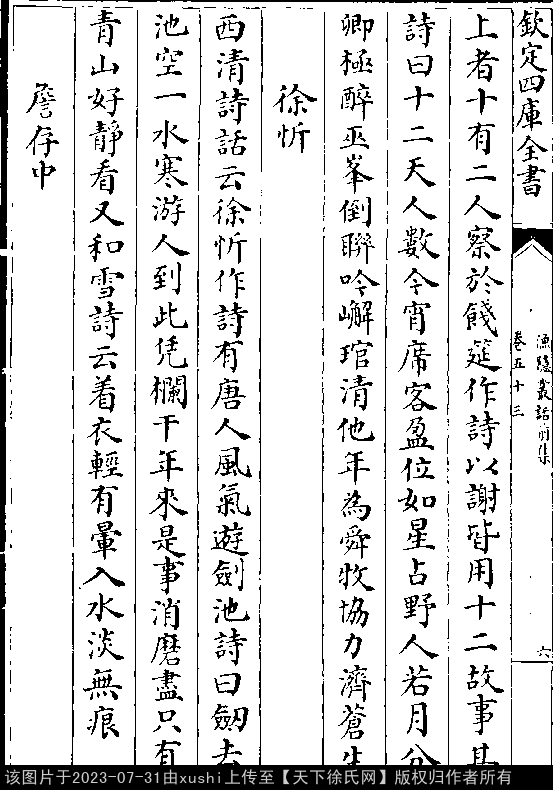 欽定四庫全書
漁隱叢話前集
卷五十三
六
上者十有二人察於餞筵作詩以謝皆用十二故事其
詩曰十二天人數今宵席客盈位如星占野人若月分
卿極醉巫峯倒聨吟嶰琯清他年為舜牧協力濟蒼生
徐忻
西清詩話云徐忻作詩有唐人風氣遊劍池詩曰劒去
池空一水寒游人到此凭欄干年來是事消磨盡只有
青山好靜看又和雪詩云着衣輕有暈入水淡無痕
詹存中
该图片于2023-07-31由xushi上传至【天下徐氏网】版权归作者所有